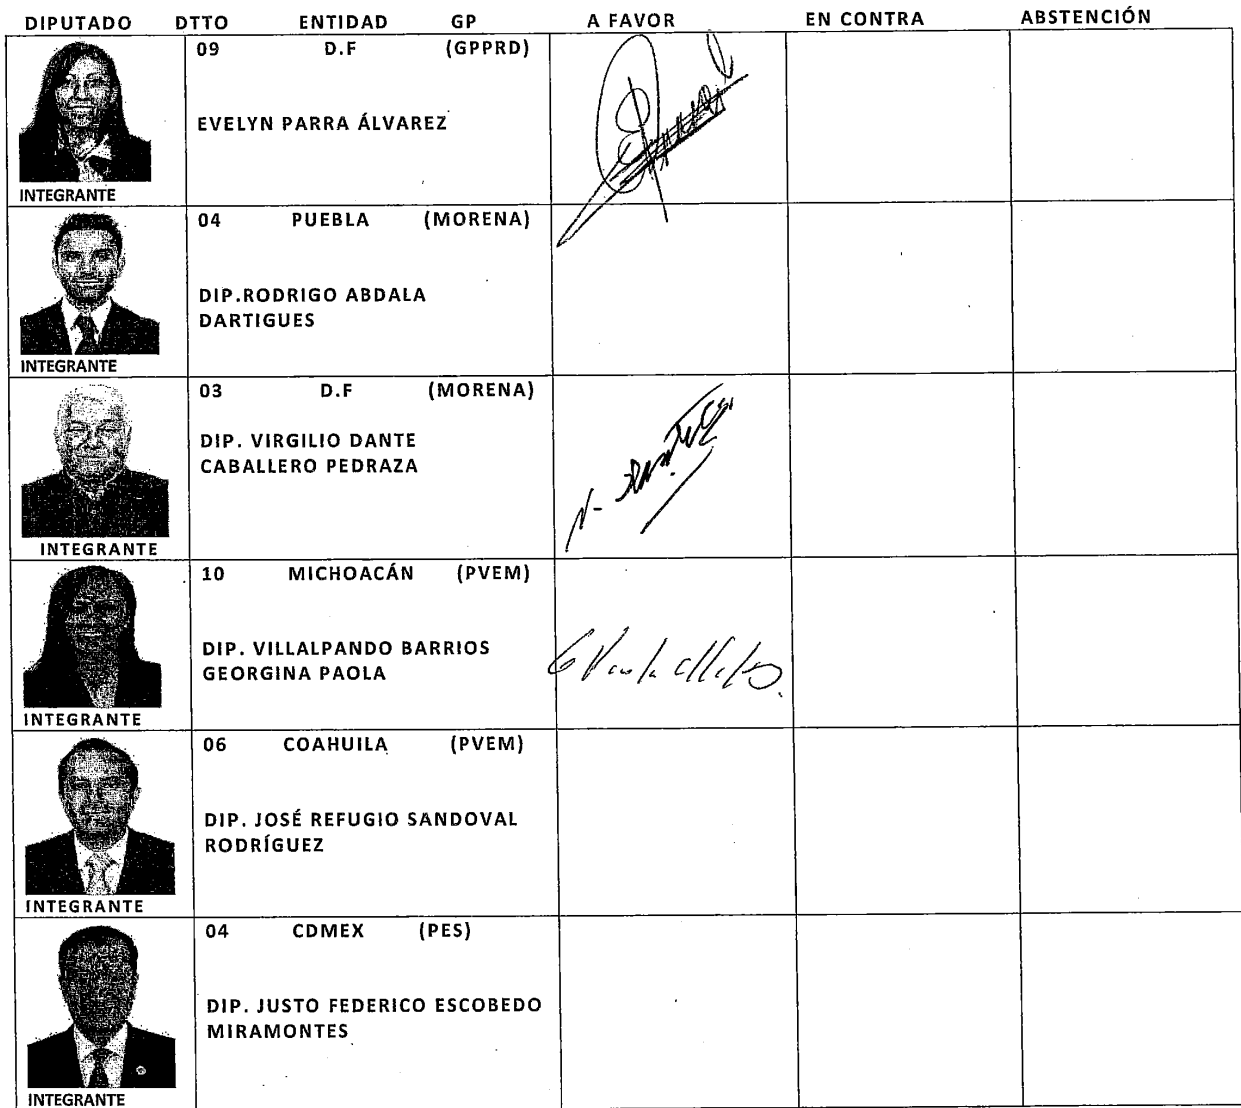 DIPUTADO DTTO ENTIDAD GP A FAVOR EN CONTRA ABSTENCIÓN
09 D.F (GPPRD)
EVELYN PARRA ÁLVAREZ
INTEGRANTE
04 PUEBLA (MORENA)
DIP.RODRIGO ABDALA
DARTIGUES
INTEGRANTE
03 D.F (MORENA)
DIP. VIRGILIO DANTE
CABALLERO PEDRAZA
INTEGRANTE
10 MICHOACÁN (PVEM)
DIP. VILLALPANDO BARRIOS
GEORGINA PAOLA
INTEGRANTE
06 COAHUILA (PVEM)
DIP. JOSÉ REFUGIO SANDOVAL
RODRÍGUEZ
INTEGRANTE
04 CDMEX (PES)
DIP. JUSTO FEDERICO ESCOBEDO
MIRAMONTES
INTEGRANTE